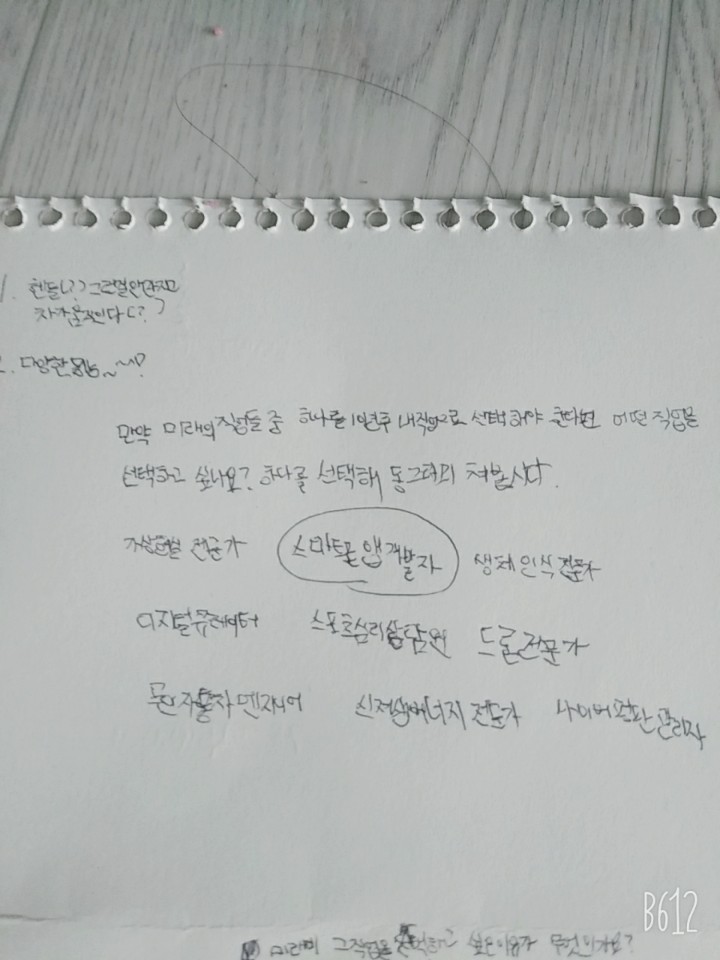 1.
2. 다양한
만약 미래의 직업들 중 하나를 10년후 내직업으로 선택해야 한다면 어떤 직업을
선택하고 싶나요? 하나를 선택해 동그라미 쳐봅시다.
가상현실 전문가 스마트폰 앱 개발자 생체 인식 전문가
디지털큐레이터 스포츠심리상담원 드론전문가
무인자동차 엔지니어 신재생에너지 전문가 사이버평판관리자
미래에 그직업을 선택하고 싶은이유가 무엇인가요?
B612